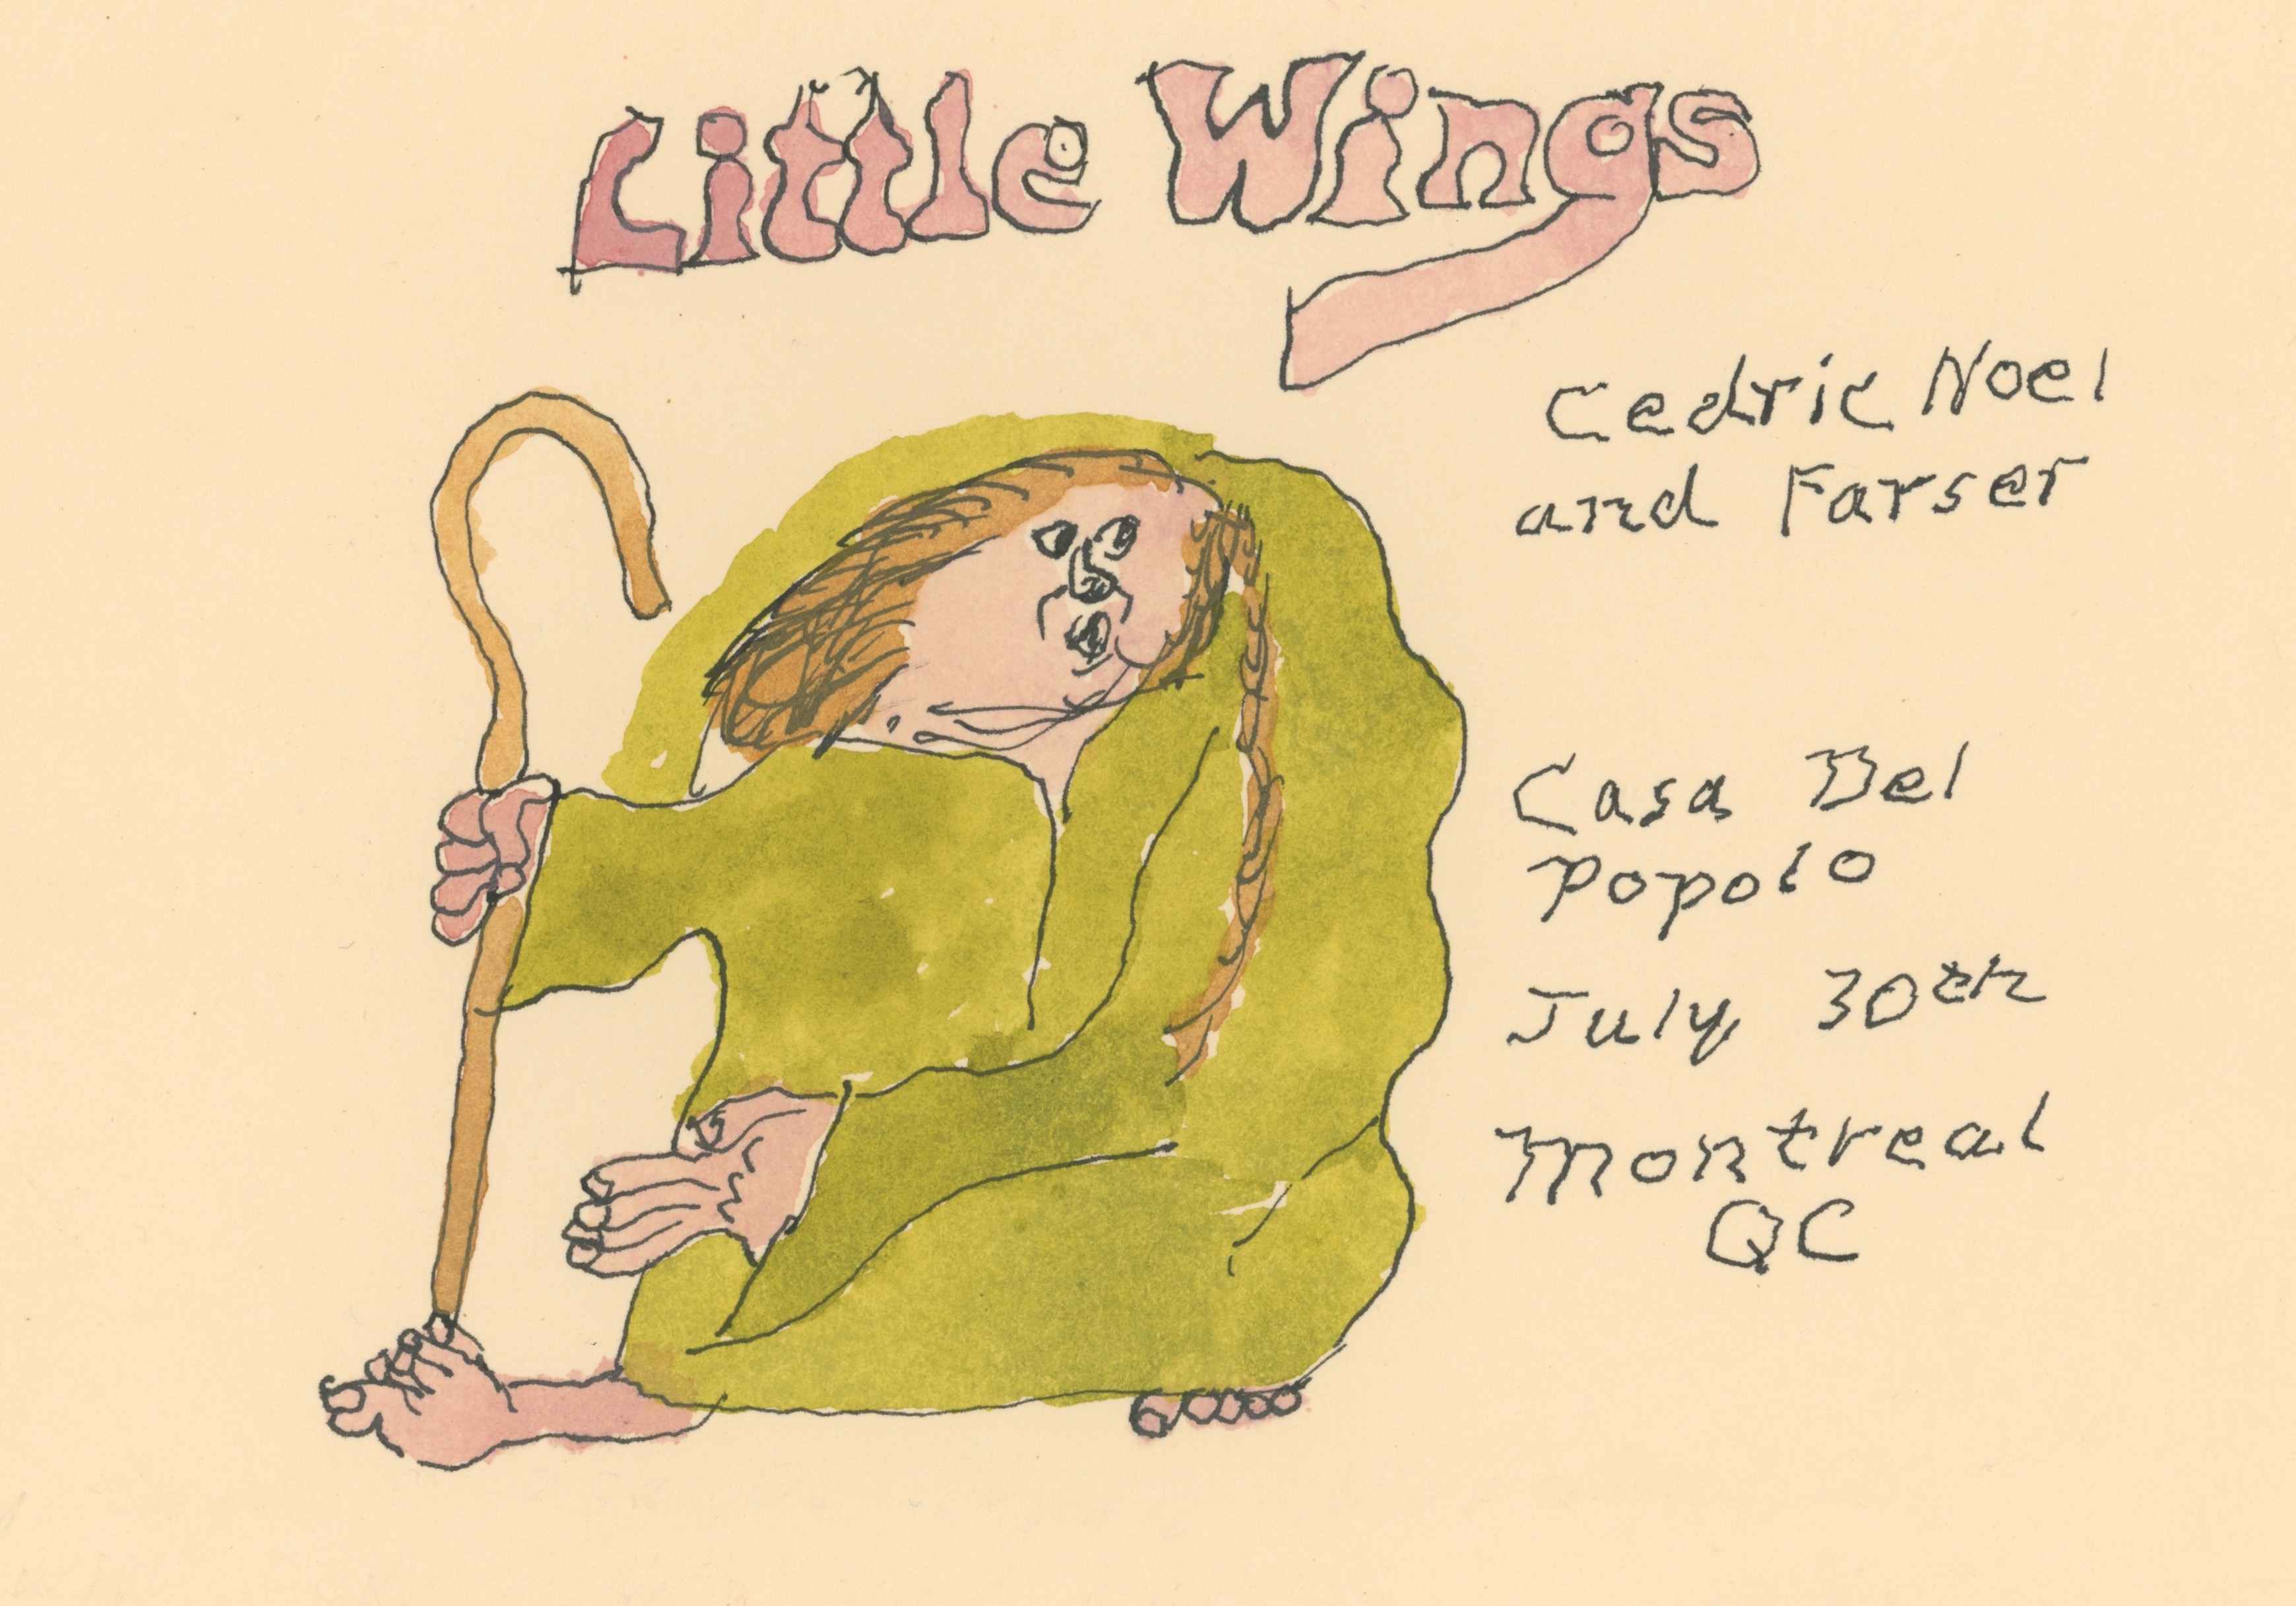 Little Wings
Cedric Noel
and Farser
Casa Del
Popolo
July 30th
Montreal
QC